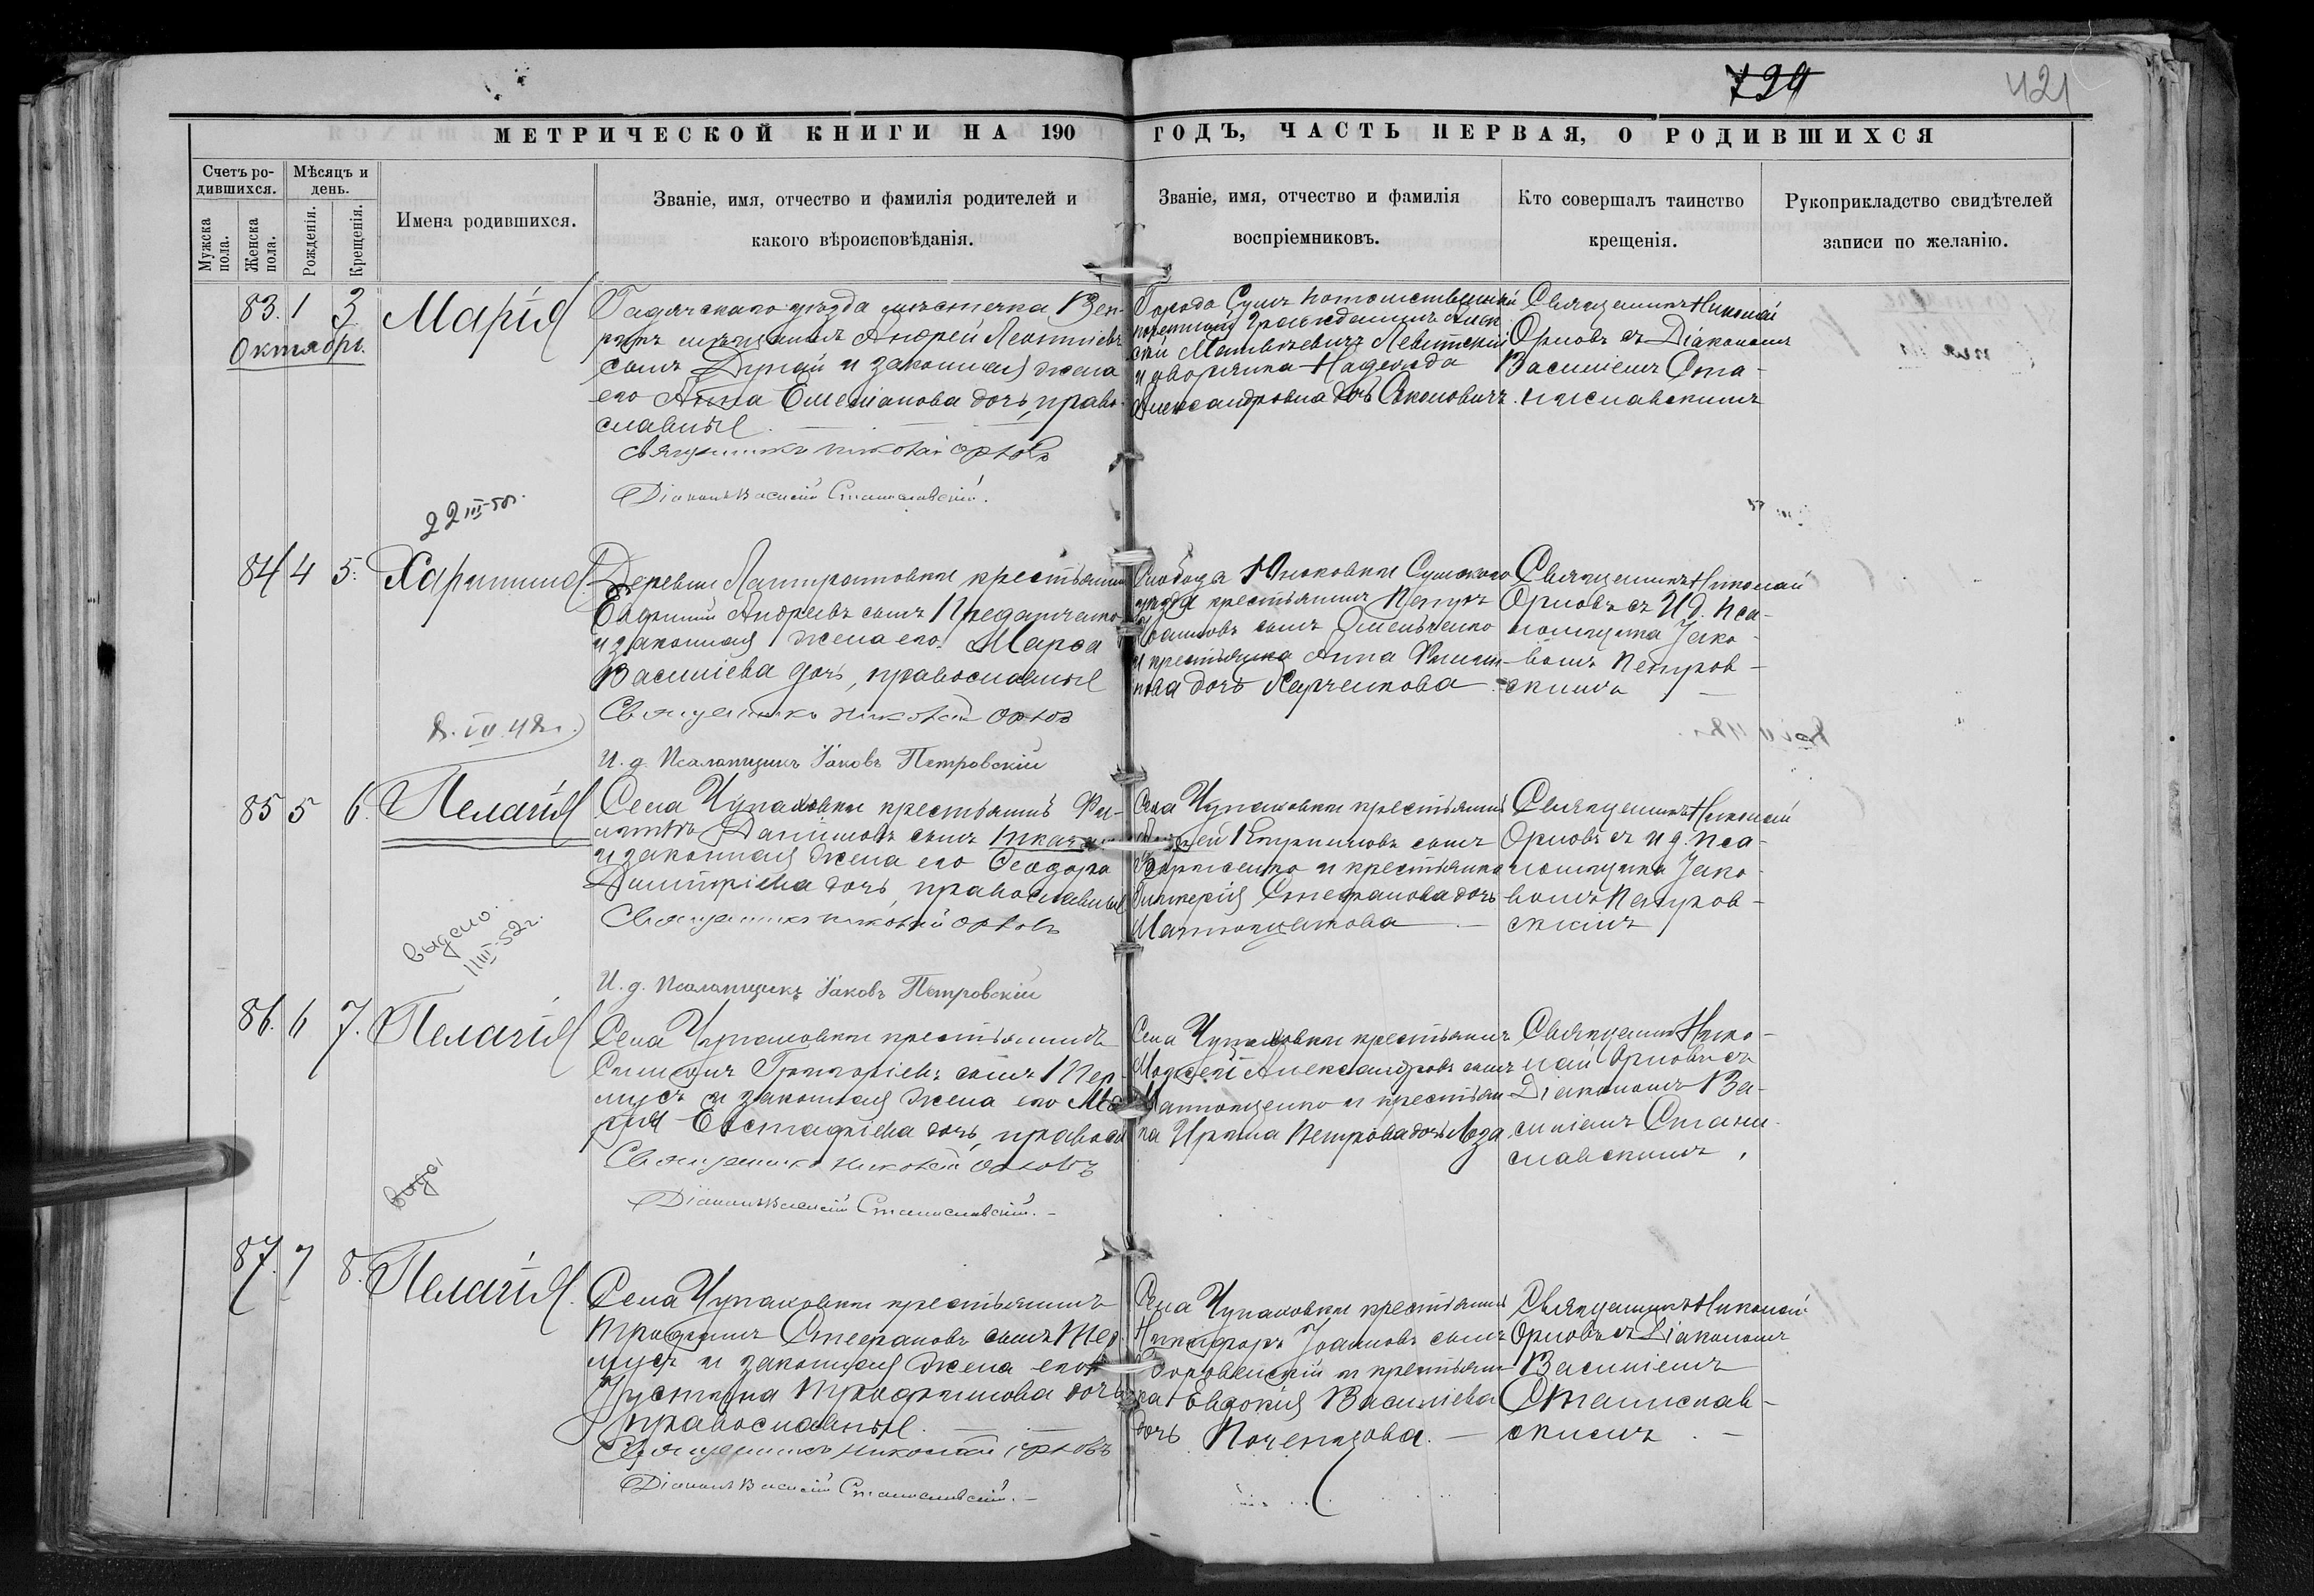 794
421
МЕТРИЧЕСКОЙ КНИГИ НА 190 ГОДЪ, ЧАСТЬ ПЕРВАЯ, О РОДИВШИХСЯ
Счетъ ро-
дившихся.
Мѣсяцъ и
день.
Мужска
пола.
Женска
пола.
Рожденія.
Крещенія.
Имена родившихся.
Званіе, имя, отчество и фамилія родителей и
какого вѣроисповѣданія.
Званіе, имя, отчество и фамилія
воспріемниковъ.
Кто совершалъ таинство
крещенія.
Рукоприкладство свидѣтелей
записи по желанію.
83. 1 3
Октябрь.
Марія
Гадячскаго уѣзда мѣстечка Веп-
рикъ мѣщанинъ Андрей Леонтіевъ
сынъ Дунай и законная жена
его Анна Емеліанова дочь, право-
славные
Священникъ Николай Орловъ
Діаконъ Василій Станиславскій.
Города Сумъ потомственный
почетный гражданинъ Алек
сѣй Матвѣевичъ Левитскій
и дворянка Надежда
Александровна дочь
Священникъ Николай
Орловъ съ Діакономъ
Василіемъ Ста-
ниславскимъ
22 III-50г.
84 4 5.
Харитина.
Деревни крестьянинъ
Евфимій Андреевъ сынъ
и законная жена его Марѳа
Василіева дочь, православные
Священникъ Николай Орловъ
И. д. Псаломщикъ Іаковъ Петровскій
Слободы Юнаковки Сумскаго
уѣзда крестьянинъ Петръ
Іоанновъ сынъ Омельченко
и крестьянка Анна Филип-
пова дочь Харченкова
Священникъ Николай
Орловъ съ И.д. Пса-
ломщика Іако-
вомъ Петров-
скимъ
8. VII 48г.
85 5 6.
Пелагія
Села Чупаховки крестьянинъ Фи-
липпъ Даніиловъ сынъ Ткач
и законная жена его Ѳеодора
Димитріева дочь, православные
Священникъ Николай Орловъ
И. д. Псаломщикъ Іаковъ Петровскій
Села Чупаховки крестьянинъ
сынъ
и крестьянка
Гликерія Стефанова дочь
Матющенкова
Священникъ Николай
Орловъ съ и д. пса-
ломщика Іако-
вомъ Петров-
скимъ
выдано.
11 III-52г.
86. 6 7.
Пелагія
Села Чупаховки крестьянинъ
Симеонъ Григоріевъ сынъ Пер-
мусъ и законная жена его Ма
рія Евстафіева дочь, правосл
Священникъ Николай Орловъ
Діаконъ Василій Станиславскій.
Села Чупаховки крестьянинъ
Моѵсей Александровъ сынъ
Матющенко и крестьян
ка Ирина Петрова дочь Лоза
Священникъ Нико-
лай Орловъ съ
Діакономъ Ва-
силіемъ Стани-
славскимъ
87. 7 8.
Пелагія.
Села Чупаховки крестьянинъ
Трофимъ Стефановъ сынъ Пер-
мусъ и законная жена его
Іустина Трофимова дочь
православные.
Священникъ Николай Орловъ
Діаконъ Василій Станиславскій.
Села Чупаховки крестьянинъ
Никифоръ Іоанновъ сынъ
и крестьян
ка Евдокія Василіева
дочь
Священникъ Николай
Орловъ съ Діакономъ
Василіемъ
Станислав-
скимъ.